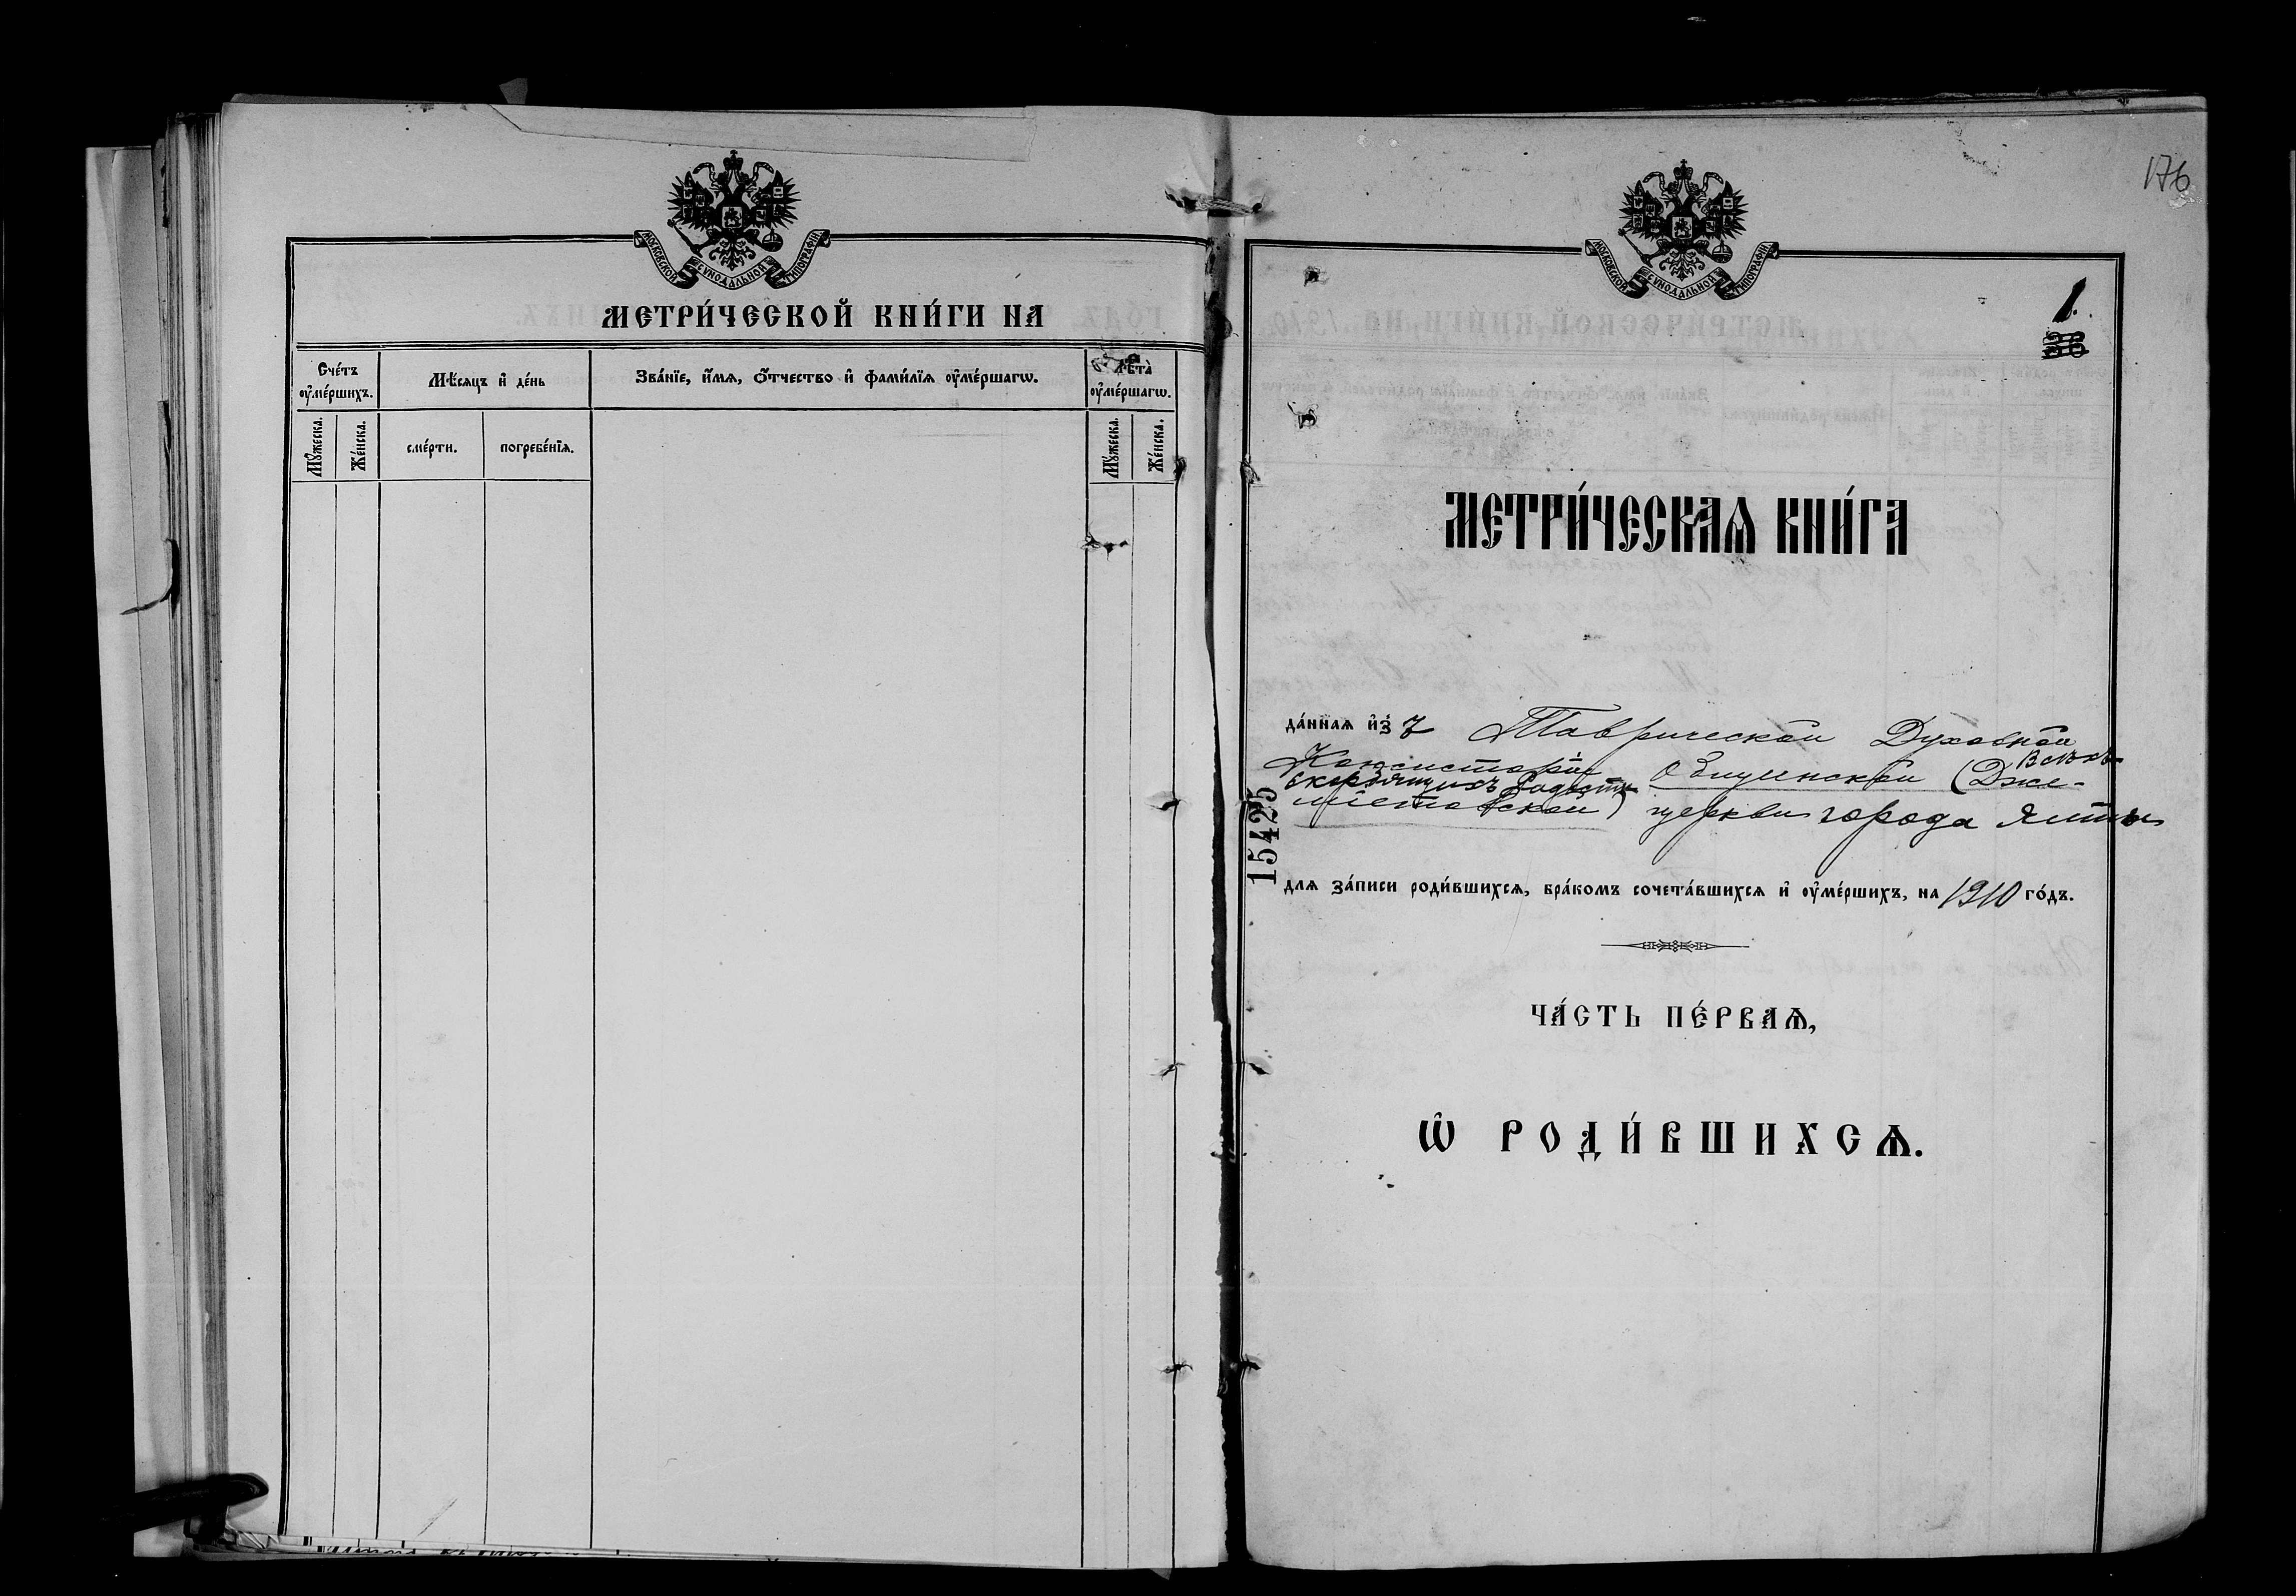 МОСКОВСКОЙ СѴНОДАЛЬНОЙ ТИПОГРАФІИ.
МЕТРИ́ЧЕСКОЙ КНИ́ГИ НА
Сче́тъ ᲂу҆ме́ршихъ.
Мѣ́сяцъ и҆ де́нь
Зва́нїе, и҆́мѧ, ѻ҆́тчество и҆ фами́лїѧ ᲂу҆ме́ршагѡ.
Лѣ́та ᲂу҆ме́ршагѡ.
Мꙋ́жеска.
Же́нска.
сме́рти.
погребе́нїѧ.
Мꙋ́жеска.
Же́нска.
176
МОСКОВСКОЙ СѴНОДАЛЬНОЙ ТИПОГРАФІИ.
1.
36
МЕТРИ́ЧЕСКАѦ КНИ́ГА
да́ннаѧ и҆з̾ Таврической Духовной
Консисторіи Общинской (Дже-
Всѣхъ
скорбящихъ Радости
митовской) церкви города Ялты
15425
длѧ за́писи роди́вшихсѧ, бра́комъ сочета́вшихсѧ и҆ ᲂу҆ме́ршихъ, на 1910 го́дъ.
ЧА́СТЬ ПЕ́РВАѦ,
Ѡ҆ РОДИ́ВШИХСѦ.